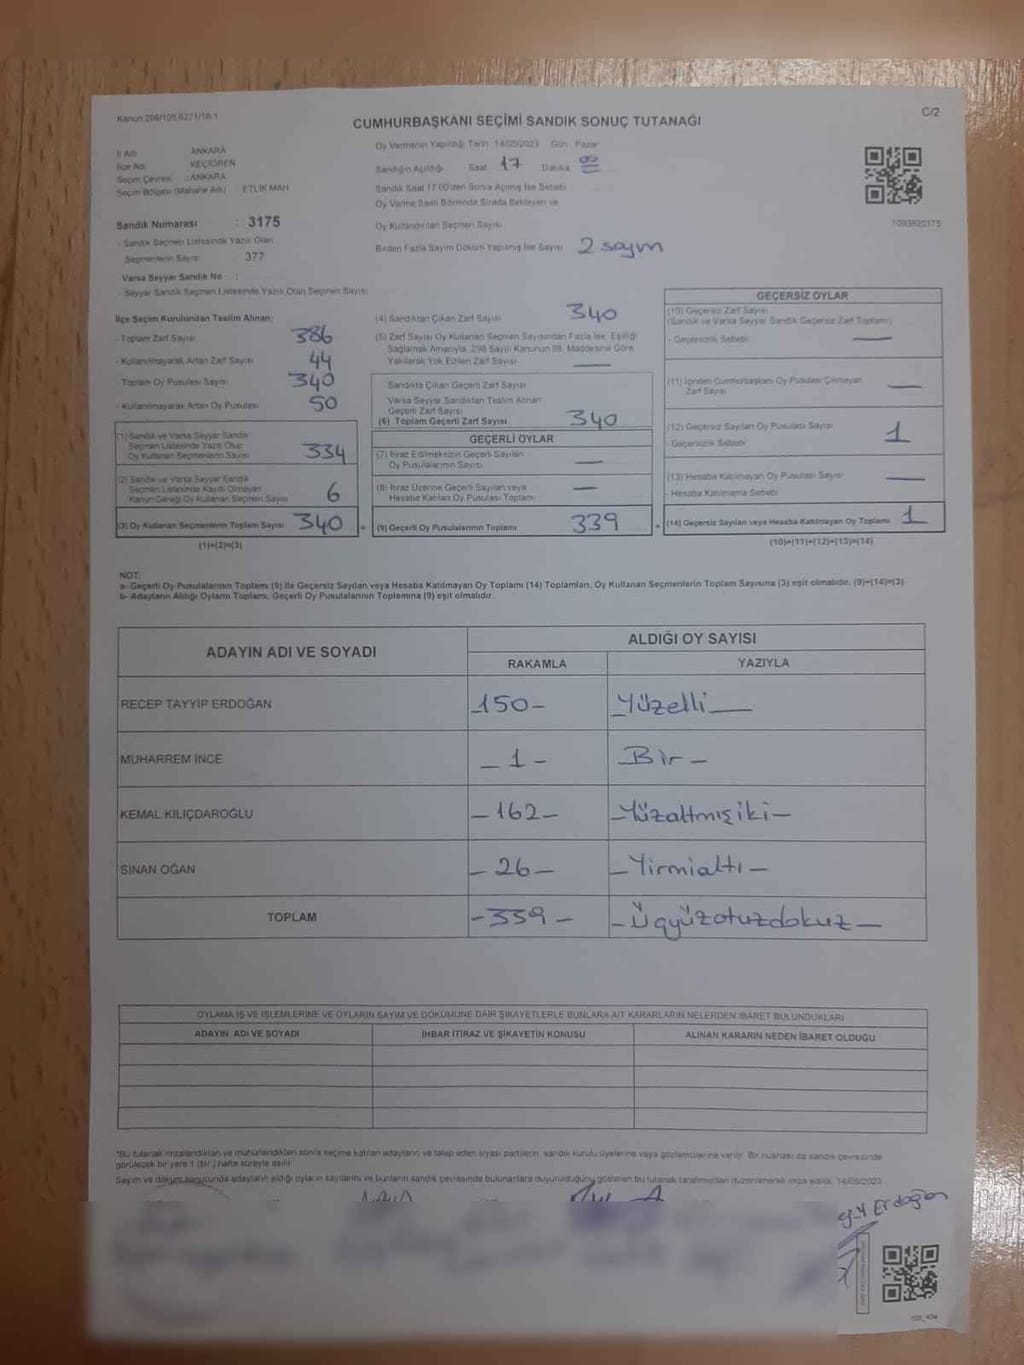 Kanun:298/105,6271/18-1
C/2
CUMHURBAŞKANI SEÇİMİ SANDIK SONUÇ TUTANAĞI
İl Adı : ANKARA
İlçe Adı : KEÇİÖREN
Seçim Çevresi : ANKARA
Seçim Bölgesi (Mahalle Adı) : ETLİK MAH
Sandık Numarası : 3175
- Sandık Seçmen Listesinde Yazılı Olan
Seçmenlerin Sayısı : 377
Varsa Seyyar Sandık No :
- Seyyar Sandık Seçmen Listesinde Yazılı Olan Seçmen Sayısı
Oy Vermenin Yapıldığı Tarih : 14/05/2023 Gün : Pazar
Sandığın Açıldığı Saat 17 Dakika 00
Sandık Saat 17:00'den Sonra Açılmış İse Sebebi
Oy Verme Saati Bitiminde Sırada Bekleyen ve
Oy Kullandırılan Seçmen Sayısı
Birden Fazla Sayım Döküm Yapılmış İse Sayısı 2 sayım
1093820375
İlçe Seçim Kurulundan Teslim Alınan;
- Toplam Zarf Sayısı 386
- Kullanılmayarak Artan Zarf Sayısı 44
- Toplam Oy Pusulası Sayısı 340
- Kullanılmayarak Artan Oy Pusulası 50
(1) Sandık ve Varsa Seyyar Sandık
Seçmen Listesinde Yazılı Olup
Oy Kullanan Seçmenlerin Sayısı 334
(2) Sandık ve Varsa Seyyar Sandık
Seçmen Listesinde Kayıtlı Olmayan
Kanun Gereği Oy Kullanan Seçmen Sayısı 6
(3) Oy Kullanan Seçmenlerin Toplam Sayısı 340
(1)+(2)=(3)
(4) Sandıktan Çıkan Zarf Sayısı 340
(5) Zarf Sayısı Oy Kullanan Seçmen Sayısından Fazla İse, Eşitliği
Sağlamak Amacıyla, 298 Sayılı Kanunun 98. Maddesine Göre
Yakılarak Yok Edilen Zarf Sayısı —
Sandıkta Çıkan Geçerli Zarf Sayısı
Varsa Seyyar Sandıktan Teslim Alınan
Geçerli Zarf Sayısı
(6) Toplam Geçerli Zarf Sayısı 340
GEÇERLİ OYLAR
(7) İtiraz Edilmeksizin Geçerli Sayılan
Oy Pusulalarının Sayısı —
(8) İtiraz Üzerine Geçerli Sayılan veya
Hesaba Katılan Oy Pusulası Toplamı —
(9) Geçerli Oy Pusulalarının Toplamı 339
GEÇERSİZ OYLAR
(10) Geçersiz Zarf Sayısı
(Sandık ve Varsa Seyyar Sandık Geçersiz Zarf Toplamı)
- Geçersizlik Sebebi —
(11) İçinden Cumhurbaşkanı Oy Pusulası Çıkmayan
Zarf Sayısı —
(12) Geçersiz Sayılan Oy Pusulası Sayısı 1
- Geçersizlik Sebebi
(13) Hesaba Katılmayan Oy Pusulası Sayısı —
- Hesaba Katılmama Sebebi
(14) Geçersiz Sayılan veya Hesaba Katılmayan Oy Toplamı 1
(10)+(11)+(12)+(13)=(14)
NOT:
a- Geçerli Oy Pusulalarının Toplamı (9) ile Geçersiz Sayılan veya Hesaba Katılmayan Oy Toplamı (14) Toplamları, Oy Kullanan Seçmenlerin Toplam Sayısına (3) eşit olmalıdır. (9)+(14)=(3)
b- Adayların Aldığı Oyların Toplamı, Geçerli Oy Pusulalarının Toplamına (9) eşit olmalıdır.
ADAYIN ADI VE SOYADI ALDIĞI OY SAYISI
RAKAMLA YAZIYLA
RECEP TAYYİP ERDOĞAN 150- Yüzelli—
MUHARREM İNCE -1- Bir-
KEMAL KILIÇDAROĞLU -162- -Yüzaltmışiki-
SİNAN OĞAN -26- -Yirmialtı-
TOPLAM -339- -Üçyüzotuzdokuz-
OYLAMA İŞ VE İŞLEMLERİNE VE OYLARIN SAYIM VE DÖKÜMÜNE DAİR ŞİKAYETLERLE BUNLARA AİT KARARLARIN NELERDEN İBARET BULUNDUKLARI
ADAYIN ADI VE SOYADI İHBAR İTİRAZ VE ŞİKAYETİN KONUSU ALINAN KARARIN NEDEN İBARET OLDUĞU
*Bu tutanak imzalandıktan ve mühürlendikten sonra seçime katılan adayların ve talep eden siyasi partilerin, sandık kurulu üyelerine veya gözlemcilerine verilir. Bir nüshası da sandık çevresinde
görülecek bir yere 1 (bir) hafta süreyle asılır.
Sayım ve döküm sonucunda adayların aldığı oyların sayılarını ve bunların sandık çevresinde bulunanlara duyurulduğunu gösteren bu tutanak tarafımızdan düzenlenerek imza edildi. 14/05/2023
Erdoğan